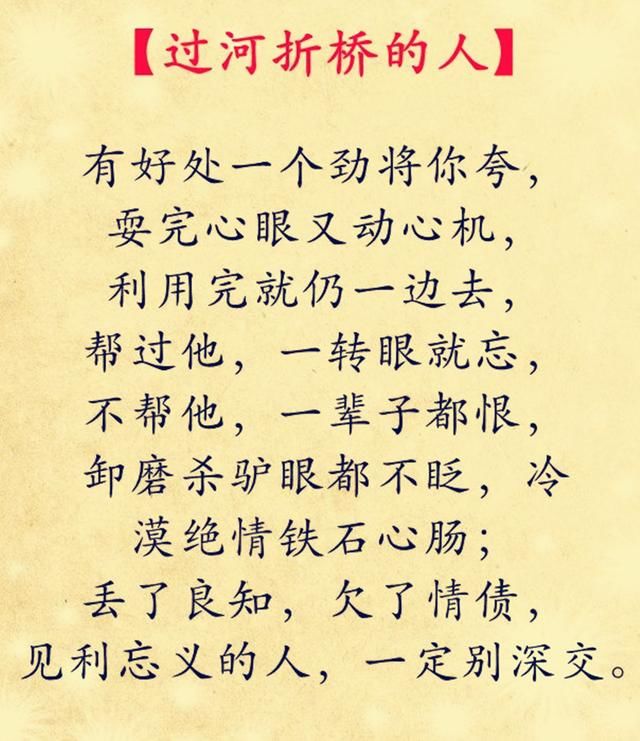 【过河折桥的人】
有好处一个劲将你夸，
耍完心眼又动心机，
利用完就仍一边去，
帮过他，一转眼就忘，
不帮他，一辈子都恨，
卸磨杀驴眼都不眨，冷
漠绝情铁石心肠；
丢了良知，欠了情债，
见利忘义的人，一定别深交。